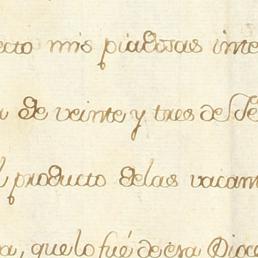 ecto mis piadosas inte
a de veinte y tres de Se
l producto delas vacan
a, que lo fué de esa Dioce